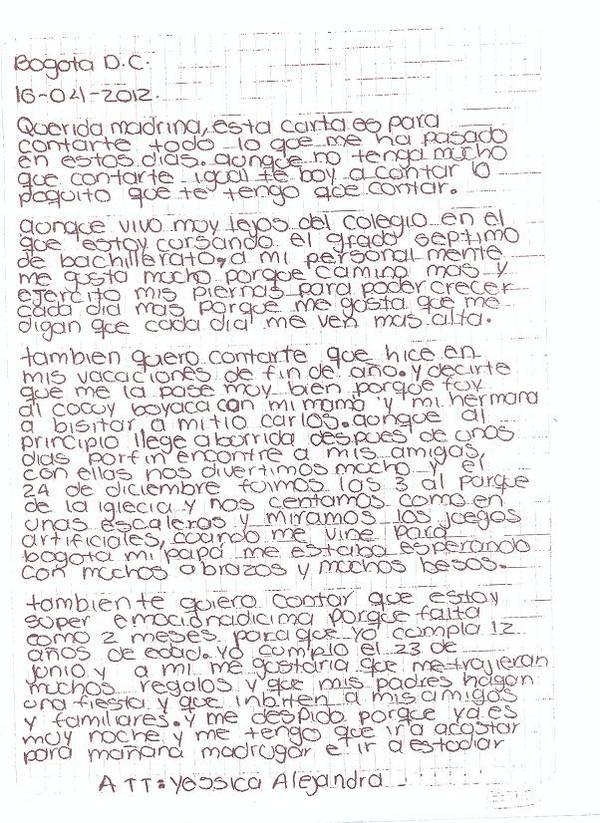 Bogota D.C.
16-04-2012.
Querida madrina, esta carta es para
contarte todo lo que me ha pasado
en estos dias. aunque no tenga mucho
que contarte igual te boy a contar lo
poquito que te tengo que contar.
aunque vivo muy lejos del colegio en el
que estoy cursando el grado septimo
de bachillerato, a mi personal mente
me gusta mucho porque camino mas y
ejercito mis piernas para poder crecer
cada dia mas porque me gusta que me
digan que cada dia me ven mas alta.
tambien quero contarte que hice en
mis vacaciones de fin de año. y decirte
que me la pase muy bien porque fuy
al cocuy boyaca con mi mamá y mi hermana
a bisitar a mi tio carlos. aunque al
principio llege aburrida despues de unos
dias por fin encontre a mis amigas,
con ellas nos divertimos mucho y el
24 de diciembre fuimos las 3 al parque
de la iglecia y nos centamos como en
unas escaleras y miramos los juegos
artificiales, cuando me vine para
bogota mi papá me estaba esperando
con muchos abrazos y muchos besos.
tambien te quiero contar que estoy
super emocionadicima porque falta
como 2 meses para que yo cumpla 12
años de edad. yo cumplo el 23 de
junio y a mi me gustaria que me trajieran
muchos regalos y que mis padres hagan
una fiesta y que inbiten a mis amigos
y familiares. y me despido porque ya es
muy noche y me tengo que ir a acostar
para mañana madrugar e ir a estudiar
ATT: Yessica Alejandra